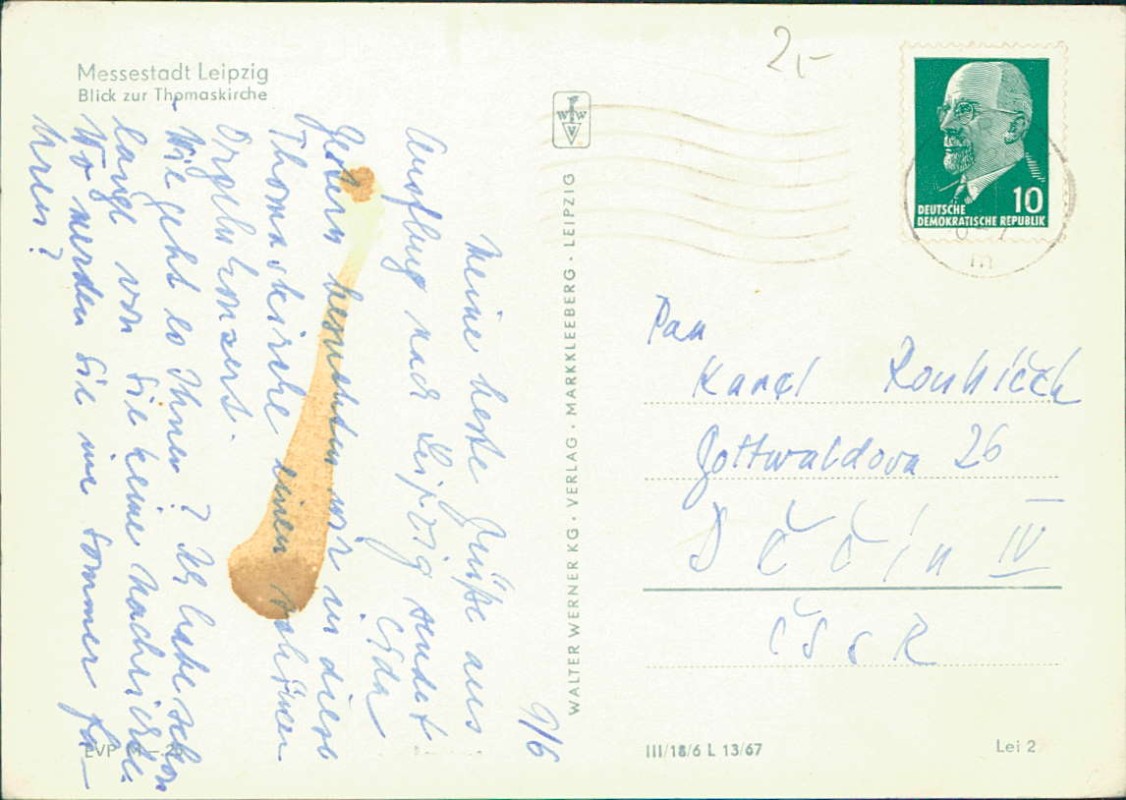 Messestadt Leipzig
Blick zur Thomaskirche
2,-
9/6
Meine beste Grüße aus
Ausflug nach Leipzig sendet
Gestern besuchten wir in diese
Thomaskirche einen schönen
Orgelkonzert.
Wie geht es Ihnen? Ich habe schon
lange von Sie keine Nachricht.
Wo werden Sie im Sommer fa-
hren?
WALTER WERNER KG · VERLAG · MARKKLEEBERG - LEIPZIG
WW
V
10
DEUTSCHE
DEMOKRATISCHE REPUBLIK
Pan
Karel
Gottwaldova 26
Děčín IV
ČSSR
EVP
III/18/6 L 13/67
Lei 2